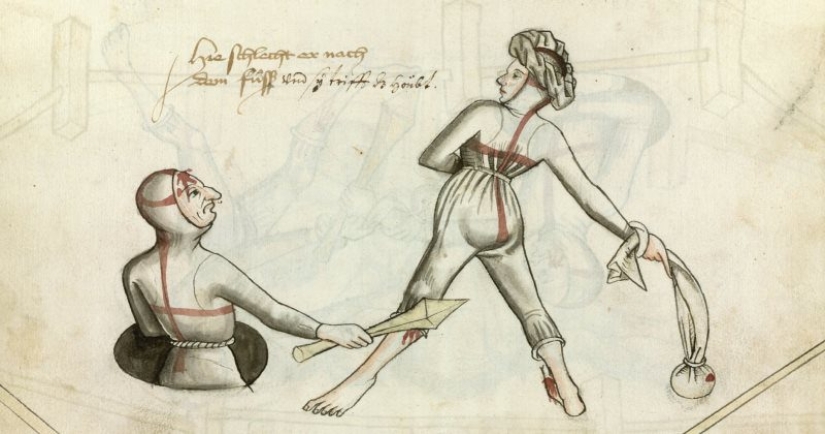 Hie schlecht er nach
dem fůſſ vnd ſy trifft dz hŏubt.